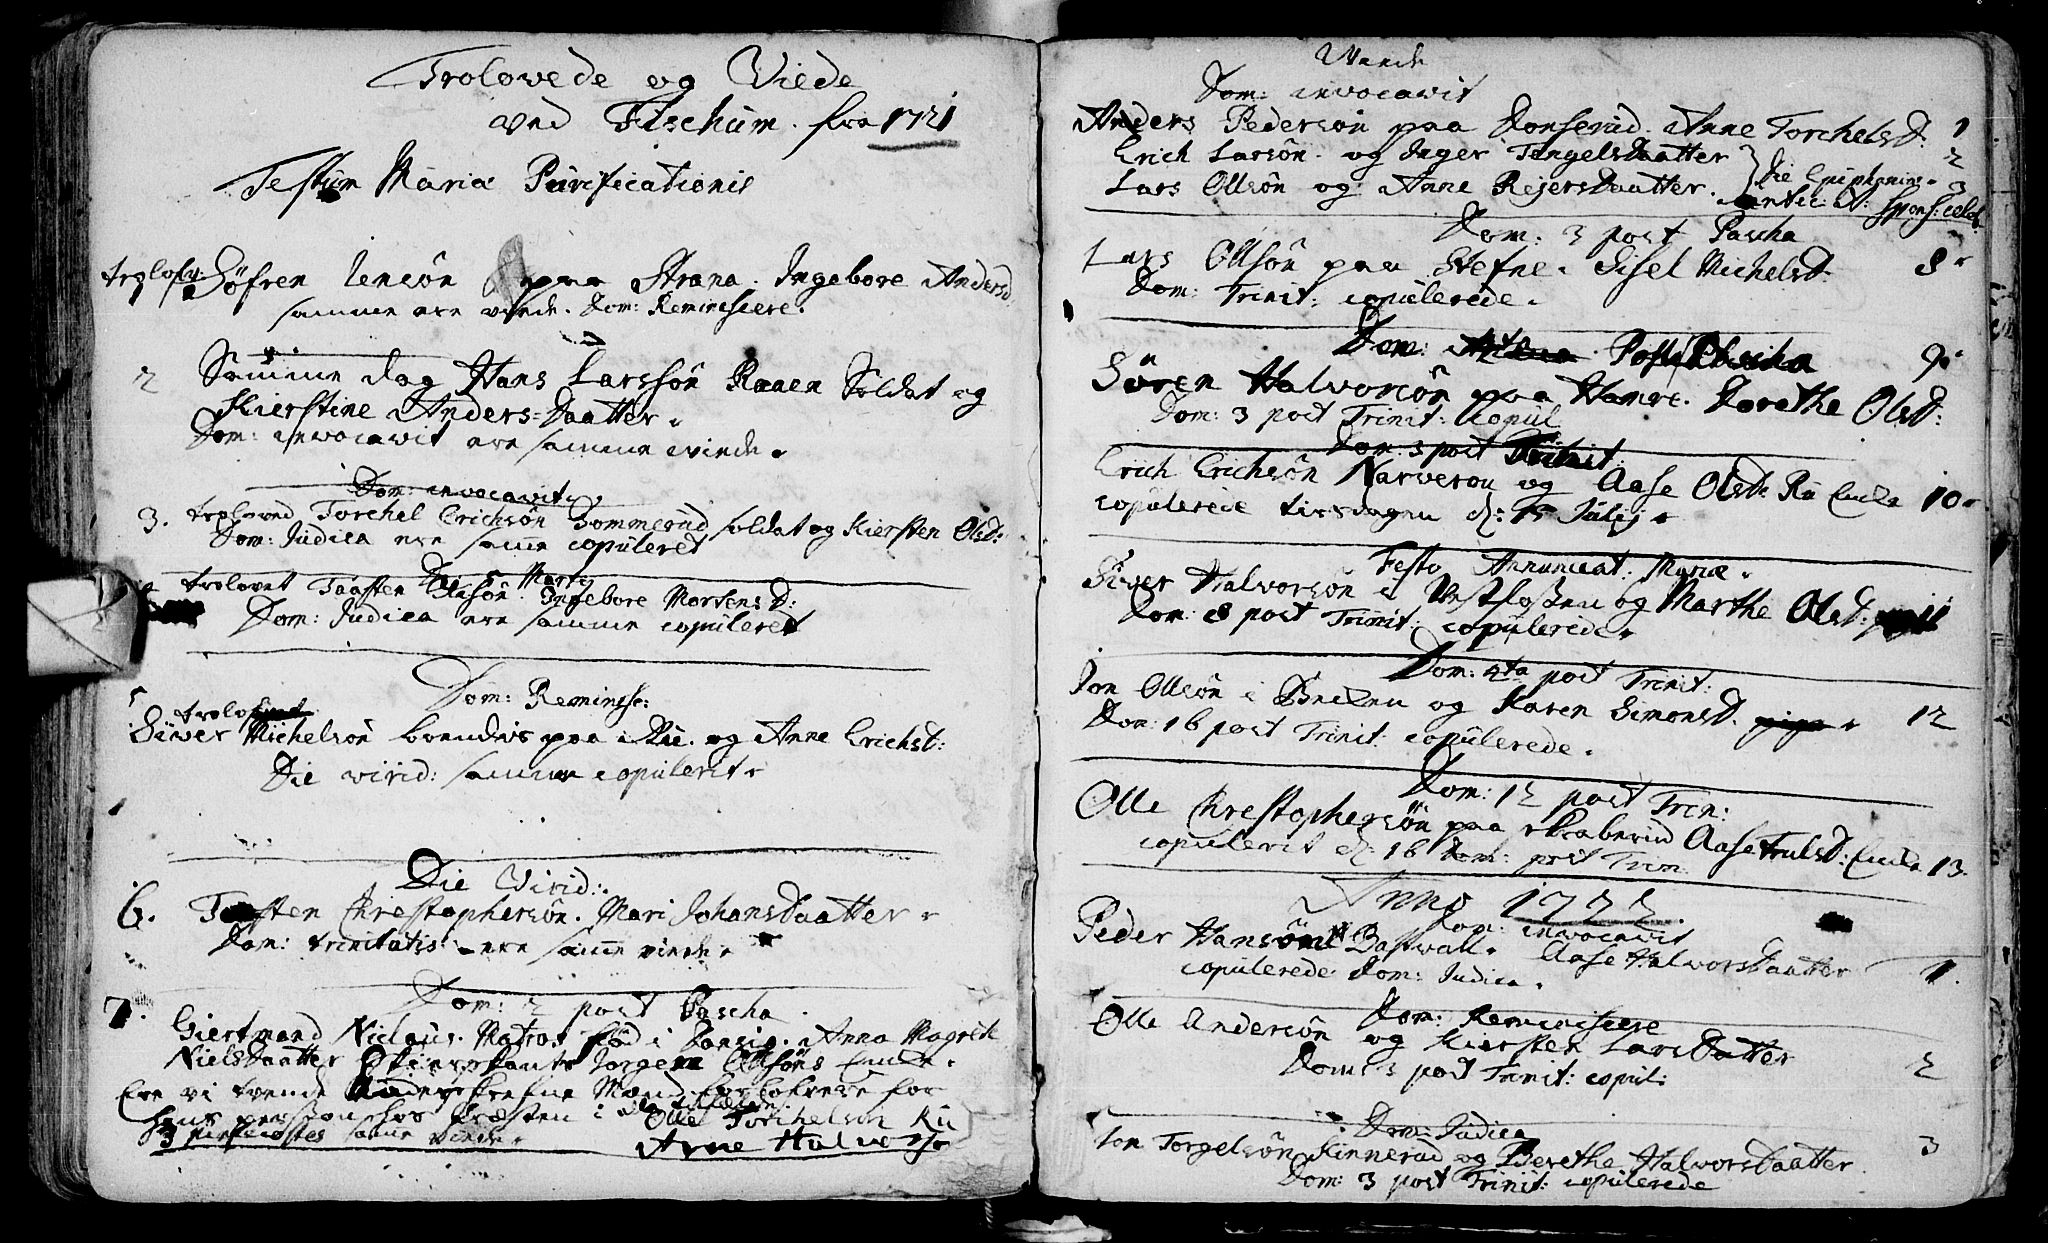 Trolovede og Viede
ved Fischum. fra 1721
Festum Mariæ Purificationis
trolofv: Søfren Jensøn paa Strana. Ingebore Andersd
1 samme ere viede. Dom: Reminiscere.
2 Samme dag Hans Larssøn Soldat og
Kierstine Anders=Daatter.
Dom: invocavit ere samme viede.
Dom: invocavit
3. troloved Torchel Erichsøn Sommerud soldat og Kiersten Olsd:
Dom: Judica ere samme copuleret
trolovet Taasten Ingebore Mortensd:
Dom: Judica ere samme copuleret
Dom: Reminisc:
5 trolofvet
Siver Michelsøn paa Ru. og Anne Erichsd:
Die virid: samme copulerit.
Die Virid:
6. Taasten Christophersøn. Mari Johansdaatter.
Dom: trinitatis ere samme viede.
Dom: 2 post Pascha.
7. Giertmand Niclaus. Matros fød i Danzig. Anna Magrete
Nielsdaatter Jørgen Ollsøns Encke.
Ere vi tvende underskrefne Mænd for
hans person hos Præsten i
Olle Torchelson Ru
3 pintzecostes samme viede.
Arne Halvorsø
Viede
Dom: invocavit
Anders Pedersøn paa Anne Torchelsd: 1
Erich Larsøn og Inger Tengelsdaatter 2
Lars Ollsøn og Anne Rejersdaatter. Die Epiphanias 3
Dom: 3 post Pascha
Lars Ollsøn paa Stefne. Sisel Michelsd. 8
Dom: Trinit: copulerede.
Dom: Post Pascha 9
Søren Halvorsøn paa Hamre. Dorethe Olsd:
Dom: 3 post Trinit: copul
Dom: 3 post Trinit:
Erich Erichsøn Narverou og Aase Olsd: Ru Encke 10
copulerede tirsdagen d: 15 Julij
Festo Annunciat: Mariæ.
Siver Halvorsøn i Vestfossen og Marthe Olsd: 11
Dom: 8 post Trinit: copulerede.
Dom: 4ta post Trinit:
Jon Ollsøn i og Karen Simonsd. pige 12
Dom: 16 post Trinit: copulerede.
Dom: 12 post Trin:
Olle Christophersøn paa Skraberud Aase Trulsd: Encke 13.
copulerit d: 16 Dom: post Trin:
Anno 1722.
Dom: invocavit
Peder Hansøn Aase Halvorsdaatter 1.
copulerede Dom: Judica.
Dom: Reminiscere
Olle Andersøn og Kiersten Larsdaatter 2
Dom: 3 post Trinit: copul:
Dom: Judica
Jon Torgelsøn Kinnerud og Berethe Halvorsdaatter 3
Dom: 3 post Trinit: copulerede